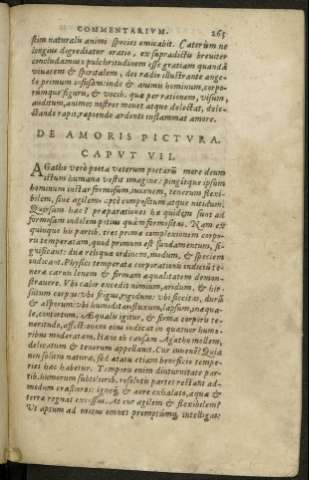 COMMENTARIVM. 265
stim naturalu animi species emicabit. Caterùm ne
longius degrediatur oratio, ex supradictis breuiter
concludamus pulchritudinem esse gratiam quandā
viuacem & spiritalem, dei radio illustrante ange-
lo primùm infusam: inde & animis hominum, corpo-
rúmque figuris, & vocib. quæ per rationem, visum,
auditum, animos nostros mouet atque delectat, dele-
ctando rapit, rapiendo ardenti inflammat amore.
DE AMORIS PICTVRA.
CAPVT VII.
AGatho verò poëta veterum pictarū more deum
istum humana vestit imagine: pingitque ipsum
hominum instar formosum, iuuenem, tenerum flexi-
bilem, siue agilem: aptè compositum atque nitidum.
Quorsum hæc? præparationes hæ quidem sunt ad
formosam indolem potius quàm formositas. Nam ex
quinque his partib. tres prima complexionem corpo-
ris temperatam, quod primum est fundamentum, si-
gnificant: duæ reliquæ ordinem, modum, & speciem
iudicant. Physici temperatæ corporationis indiciū te-
neræ carnis lenem & firmam æqualitatem demon-
strauere. Vbi calor excedit nimium, aridum, & hir-
sutum corpus: vbi frigus, rigidum: vbi siccitas, durū
& asperum: vbi humiditas, fluxum, lapsum, inæqua-
le, contortum. Æqualis igitur, & firma corporis te-
neritudo, affectionem eius indicat in quatuor humo-
ribus moderatam. Hanc ob causam Agatho mollem,
delicatum & tenerum appellauit. Cur iuuenē? Quia
non solùm natura, sed ætatis etiam beneficio tempe-
ries hæc habetur. Temporis enim diuturnitate par-
tib. humorum subtiliorib. resolutis partes restāt ad-
modum crassiores: igne, & aere exhalato, aquæ &
terræ regnat excessus. At cur agilem & flexibilem?
Vt aptum ad motus omnes promptúmque intelligas: